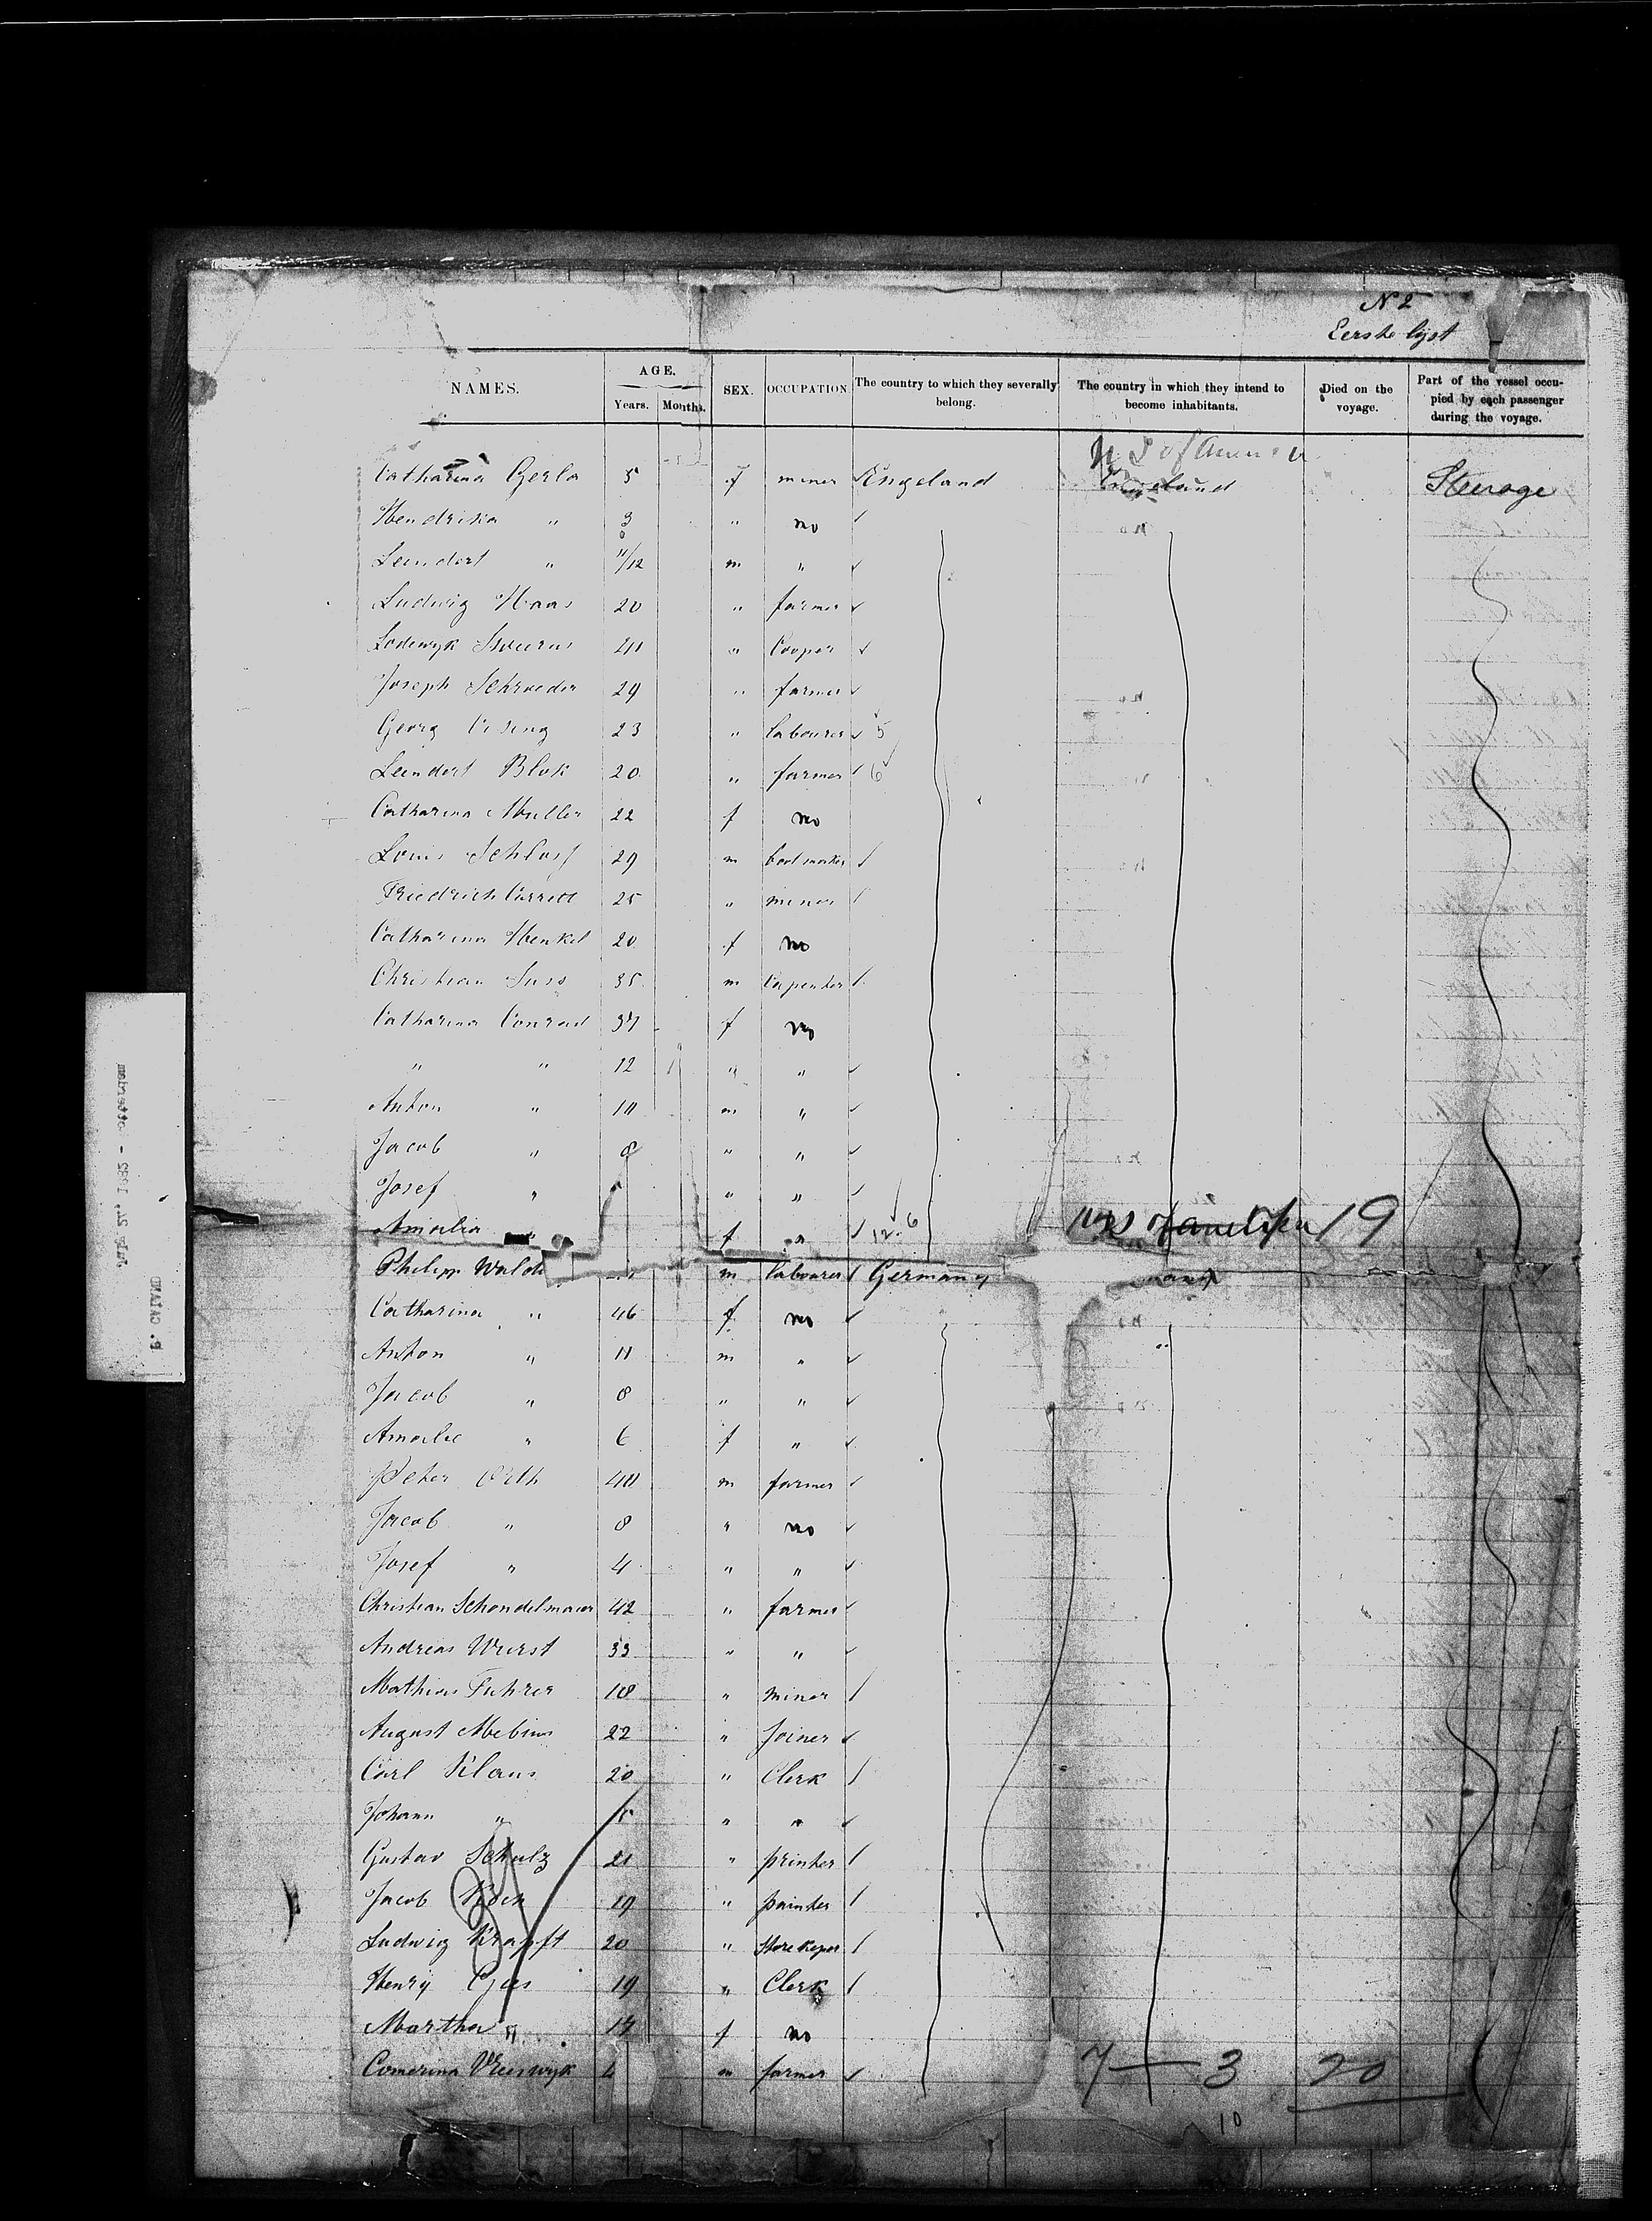 N 2
Eerste lijst
NAMES. AGE. Years. Months. SEX. OCCUPATION The country to which they severally belong. The country in which they intend to become inhabitants. Died on the voyage. Part of the vessel occupied by each passenger during the voyage.
U S of
Catharina Gerla 5 f miner Engeland Engeland Steerage
Hendrika " 3 " no
Leendert " 11/12 m "
Ludwig Haas 20 " farmer
Lodewyk 20 " Cooper
Joseph Schroeder 29 " farmer
Georg 23 " labourer 5
Leendert Blok 20 " farmer 6
Catharina Muller 22 f no
Louis Schloss 29 m bootmaker
Friedrich 25 " miner
Catharina Henkel 20 f no
Christian Suss 35 m Carpenter
Catharina Conrad 37 f no
" " 12 " "
Anton " 10 m "
Jacob " 8 " "
Josef " " "
Amalia " f " 12 6 19
Philipp m labourer Germany
Catharina " 46 f no
Anton " 11 m "
Jacob " 8 " "
Amalie " 6 f "
Peter Orth 40 m farmer
Jacob " 8 " no
Josef " 4 " "
Christian Schondelmaier 42 " farmer
Andreas Wurst 33 " "
Mathias Fuhrer 18 " miner
August Mebius 22 " Joiner
Carl Klaus 20 " Clerk
Johann " " "
Gustav Schulz 21 " printer
Jacob Koch 19 " painter
Ludwig Krafft 20 " Storekeper
Henry 19 " Clerk
Martha " 17 f no
Vreeswyk m farmer 7 — 3 20
10